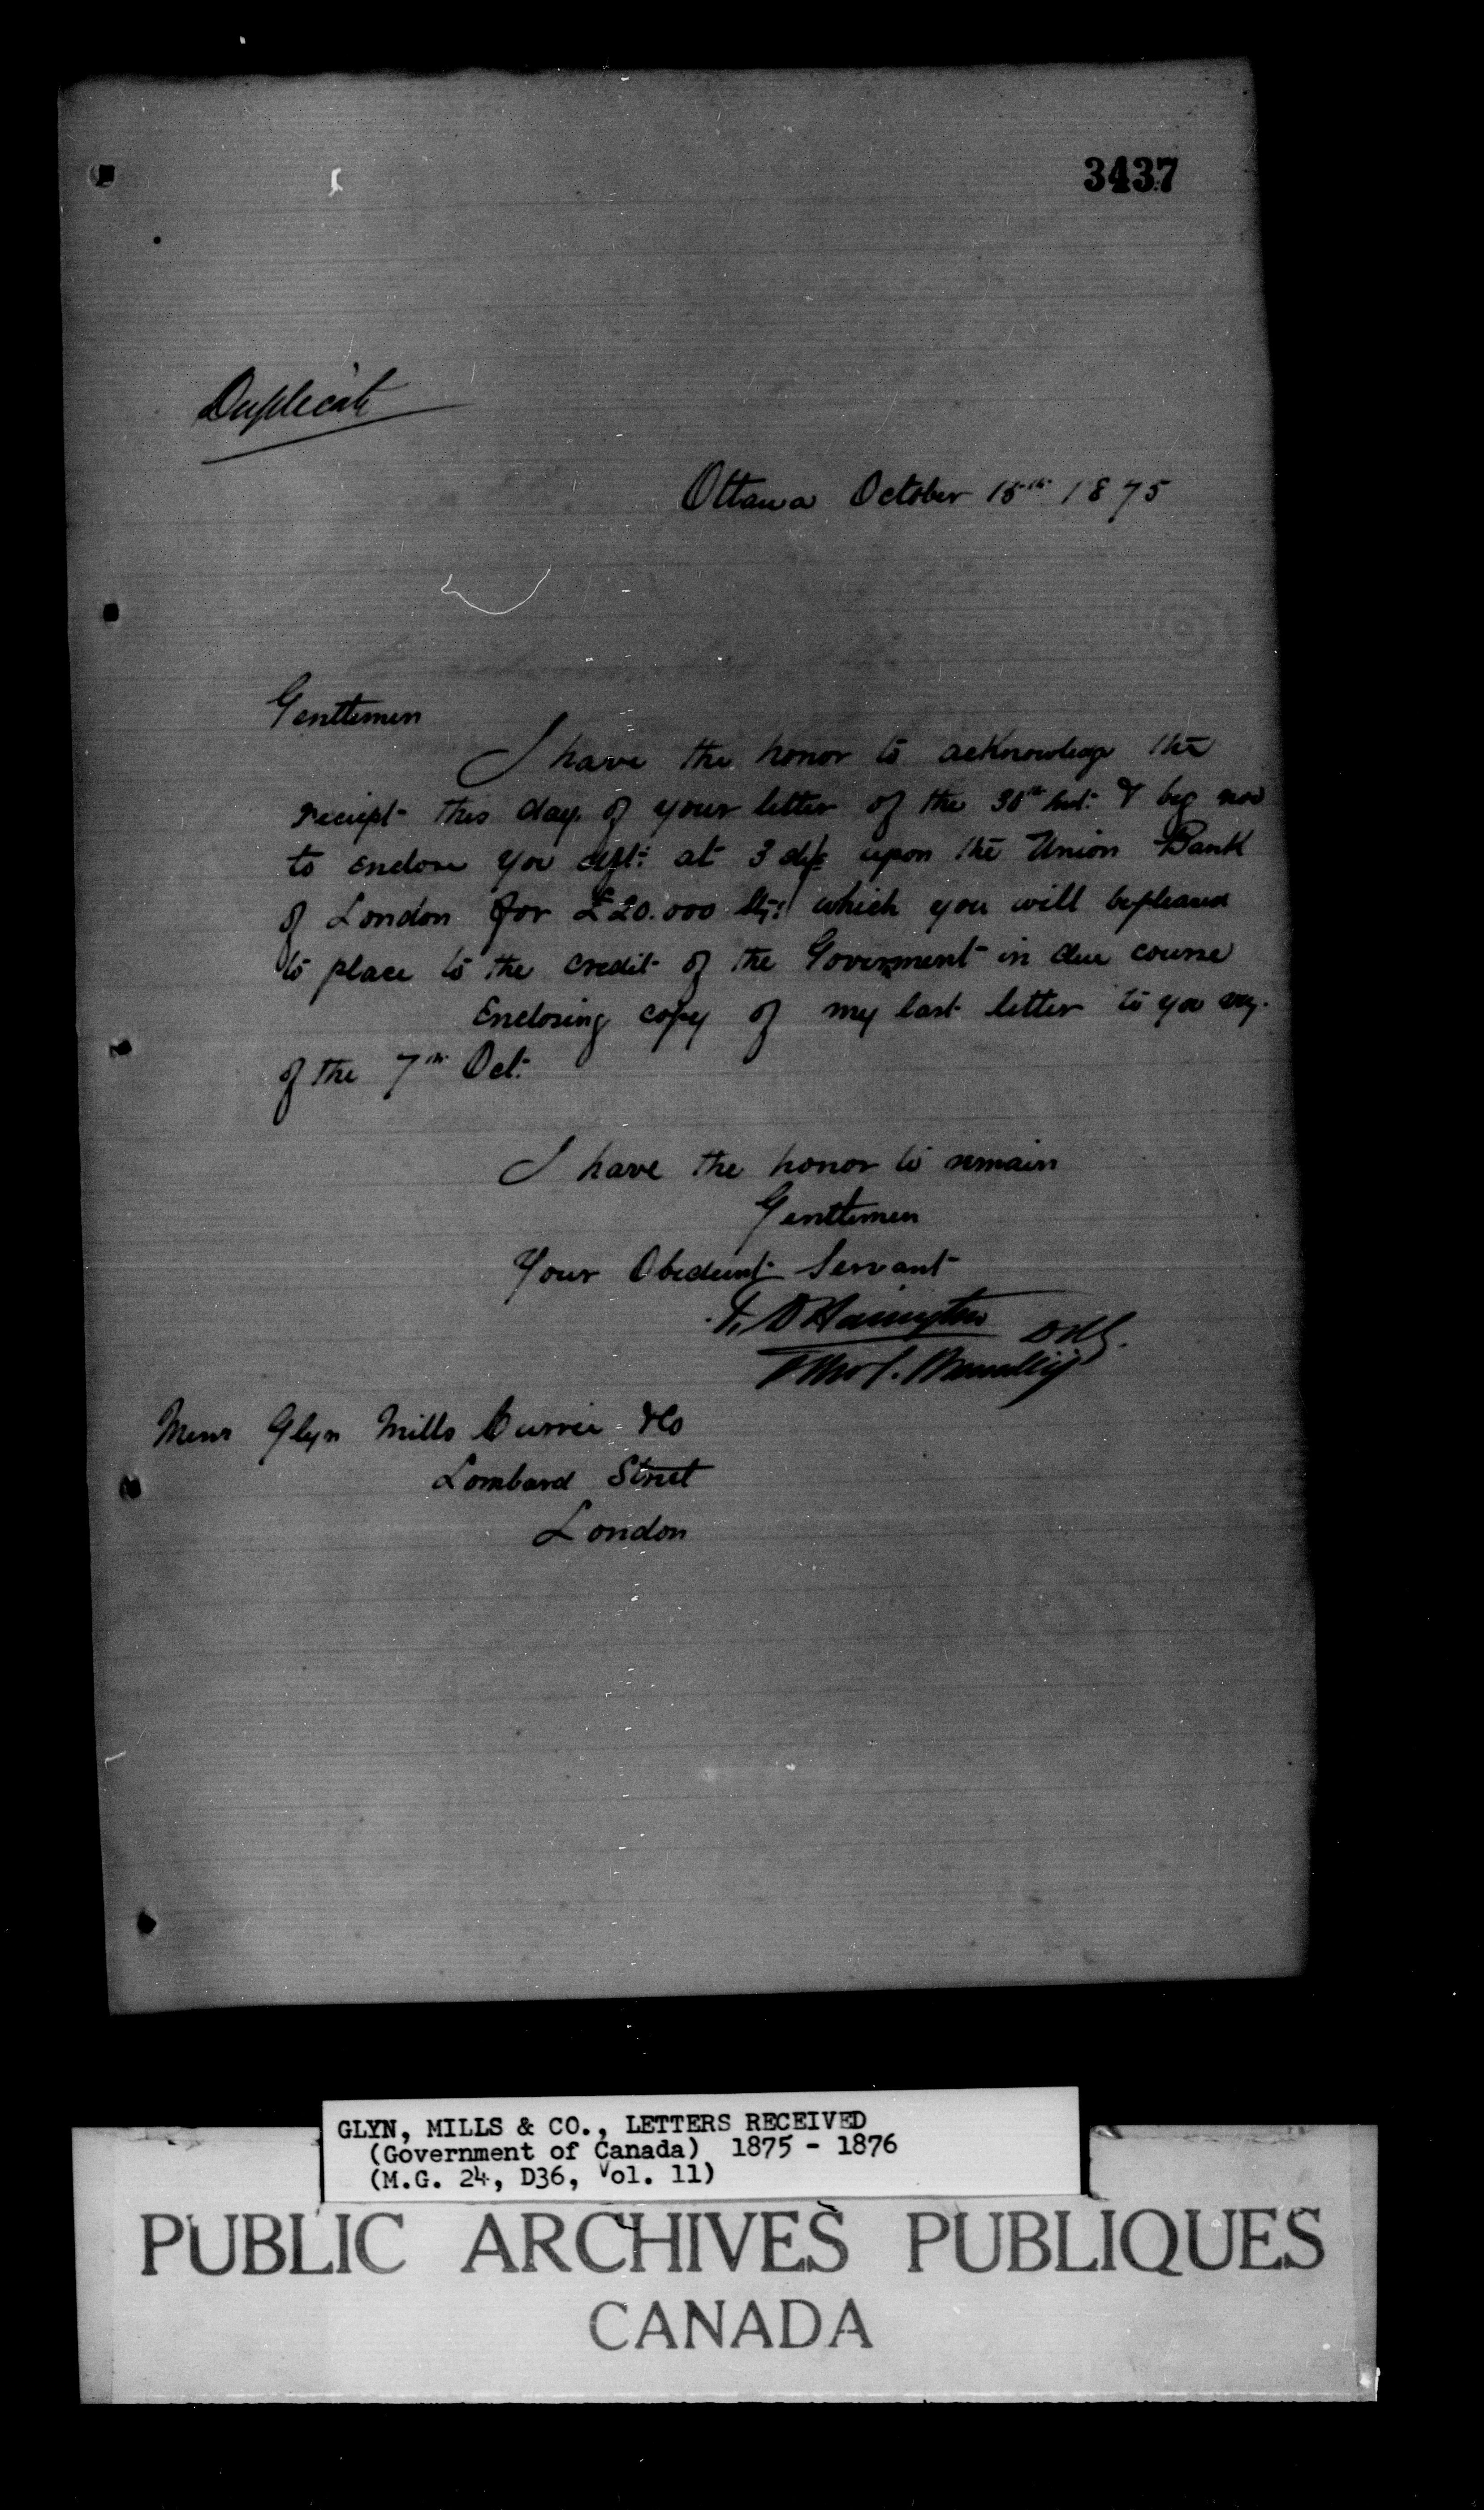 3437
Duplicate
Ottawa October 15th 1875
Gentlemen
I have the honor to acknowledge the
reciept this day of your letter of the 30th & beg now
to enclose you dft: at 3 d/s upon the Union Bank
of London for £20.000 Stg: which you will be pleased
to place to the credit of the Goverment in due course
Enclosing copy of my last letter to you
of the 7th Oct:
I have the honor to remain
Gentlemen
Your Obedient Servant
T. D Harington
Messrs Glyn Mills Currie & Co
Lombard Street
London
GLYN, MILLS & CO., LETTERS RECEIVED
(Government of Canada) 1875 - 1876
(M.G. 24, D36, Vol. 11)
PUBLIC ARCHIVES PUBLIQUES
CANADA